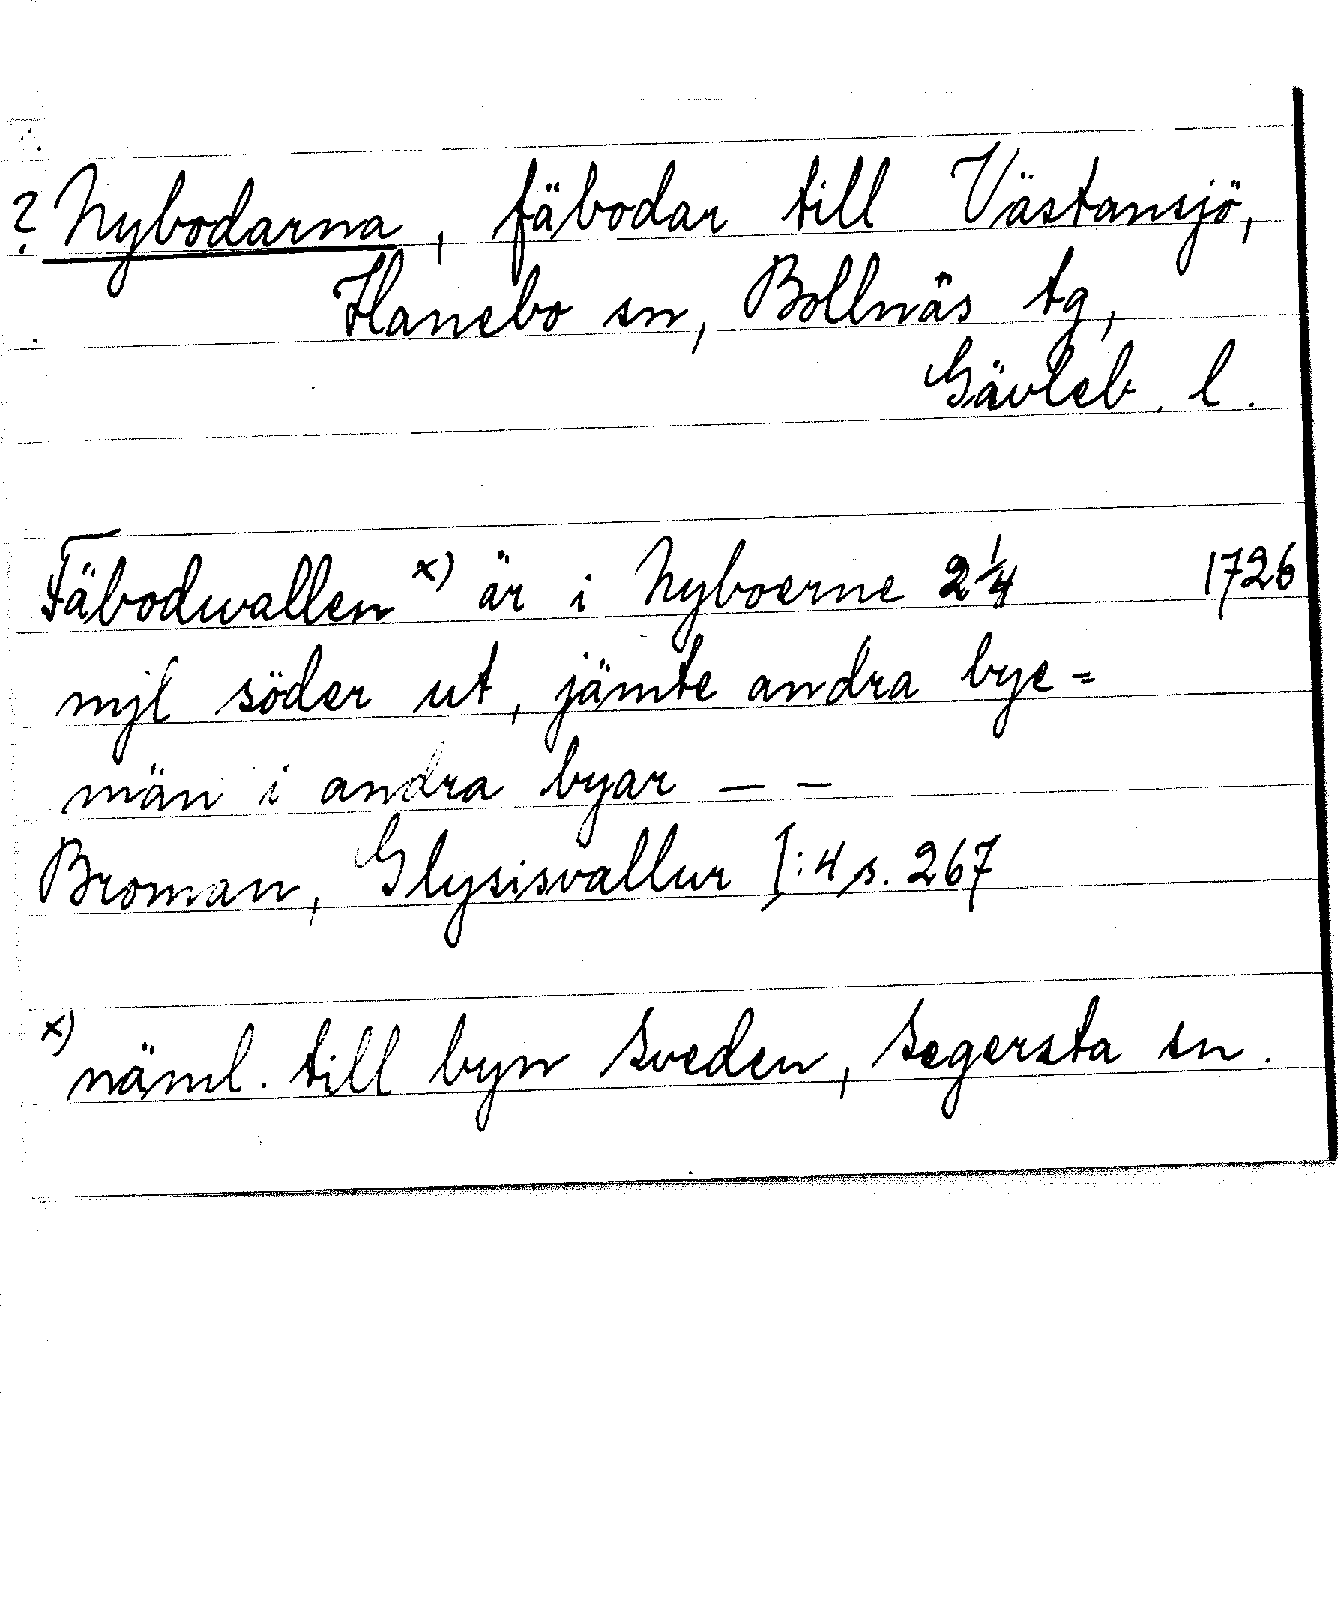 ? Nybodarna, fäbodar till Västansjö,
Hanebo sn, Bollnäs tg,
Gävleb. l.
Fäbodwallen x) är i Nyboerne 2 1/4 1726
mjl söder ut, jämte andra bye=
män i andra byar — —
Broman, Glysisvallur I:4 s. 267
x) näml. till byn Sveden, Segersta sn.